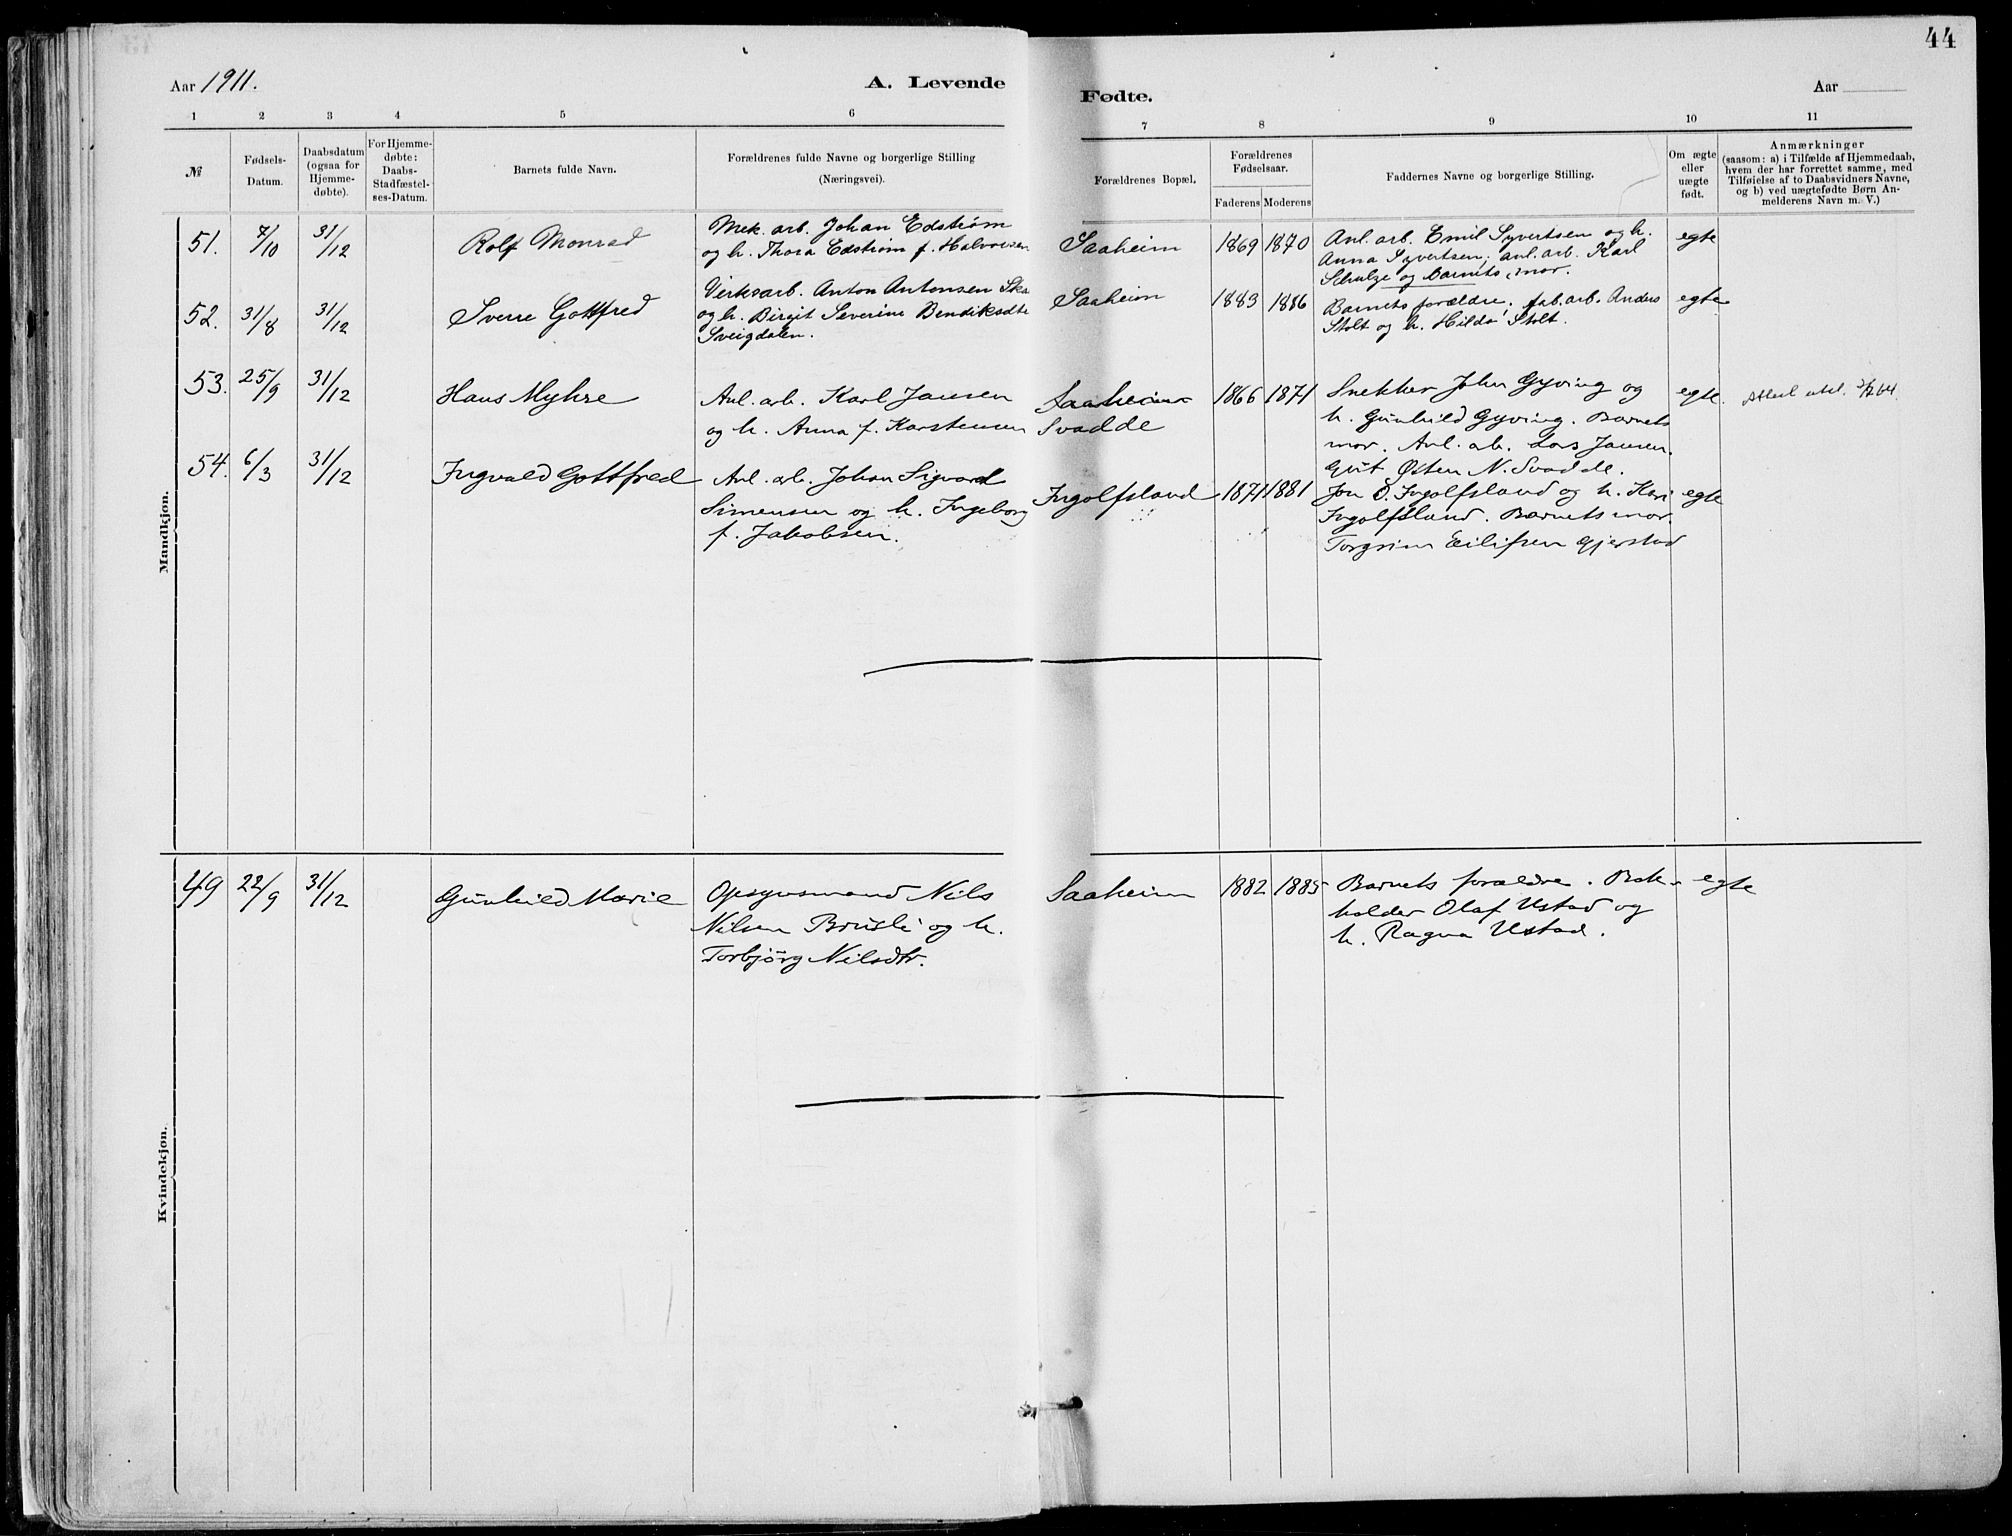 44
Aar 1911.
A. Levende
Fødte.
Aar
1 2 3 4 5 6 7 8 9 10 11
№
Fødsels-
Datum.
Daabsdatum
(ogsaa for
Hjemme-
døbte).
For Hjemme-
døbte:
Daabs-
Stadfæstel-
ses-Datum.
Barnets fulde Navn.
Forældrenes fulde Navne og borgerlige Stilling
(Næringsvei).
Forældrenes Bopæl.
Forældrenes
Fødselsaar.
Faderens Moderens
Faddernes Navne og borgerlige Stilling.
Om ægte
eller
uægte
født.
Anmærkninger
(saasom: a) i Tilfælde af Hjemmedaab,
hvem der har forrettet samme, med
Tilføielse af to Daabsvidners Navne,
og b) ved uægtefødte Børn An-
melderens Navn m. V.)
Mandkjøn.
51. 7/10 31/12 Rolf Monrad
Mek. arb. Johan Edstrøm
og h. Thora Edstrøm f. Halvorsen
Saaheim 1869 1870
Anl. arb. Emil Syvertsen og h.
Anna Syvertsen; anl. arb. Karl
Schulze og Barnets mor.
egte
52. 31/8 31/12 Sverre Gottfred
Verksarb. Anton Antonsen Ska
og h. Birgit Severine Bendiksdtr
Sveigdalen.
Saaheim 1883 1886
Barnets forældre; fab. arb. Anders
Stolt og h. Hilda Stolt.
egte
53. 25/9 31/12 Hans Myhre
Anl. arb. Karl Jansen
og h. Anna f. Karstensen
Saaheim
Svadde
1866 1871
Snekker John Gyving og
h. Gunhild Gyving. Barnets
mor. Anl. arb. Lars Jansen.
Gut Østen N. Svadde.
egte.
Attest utst.
54. 6/3 31/12 Ingvald Gottfred
Anl. arb. Johan Sigvard
Simensen og h. Ingeborg
f. Jakobsen.
Ingolfsland 1871 1881
Jon O. Ingolfsland og h. Kari
Ingolfsland. Barnets mor.
Torgrim Eilifsen Gjerstad
egte
Kvindekjøn.
49 22/9 31/12 Gunhild Marie
Opsynsmand Nils
Nilsen Brusli og h.
Torbjörg Nilsdtr.
Saaheim 1882 1885
Barnets forældre. Bok-
holder Olaf Ustad og
h. Ragna Ustad.
egte